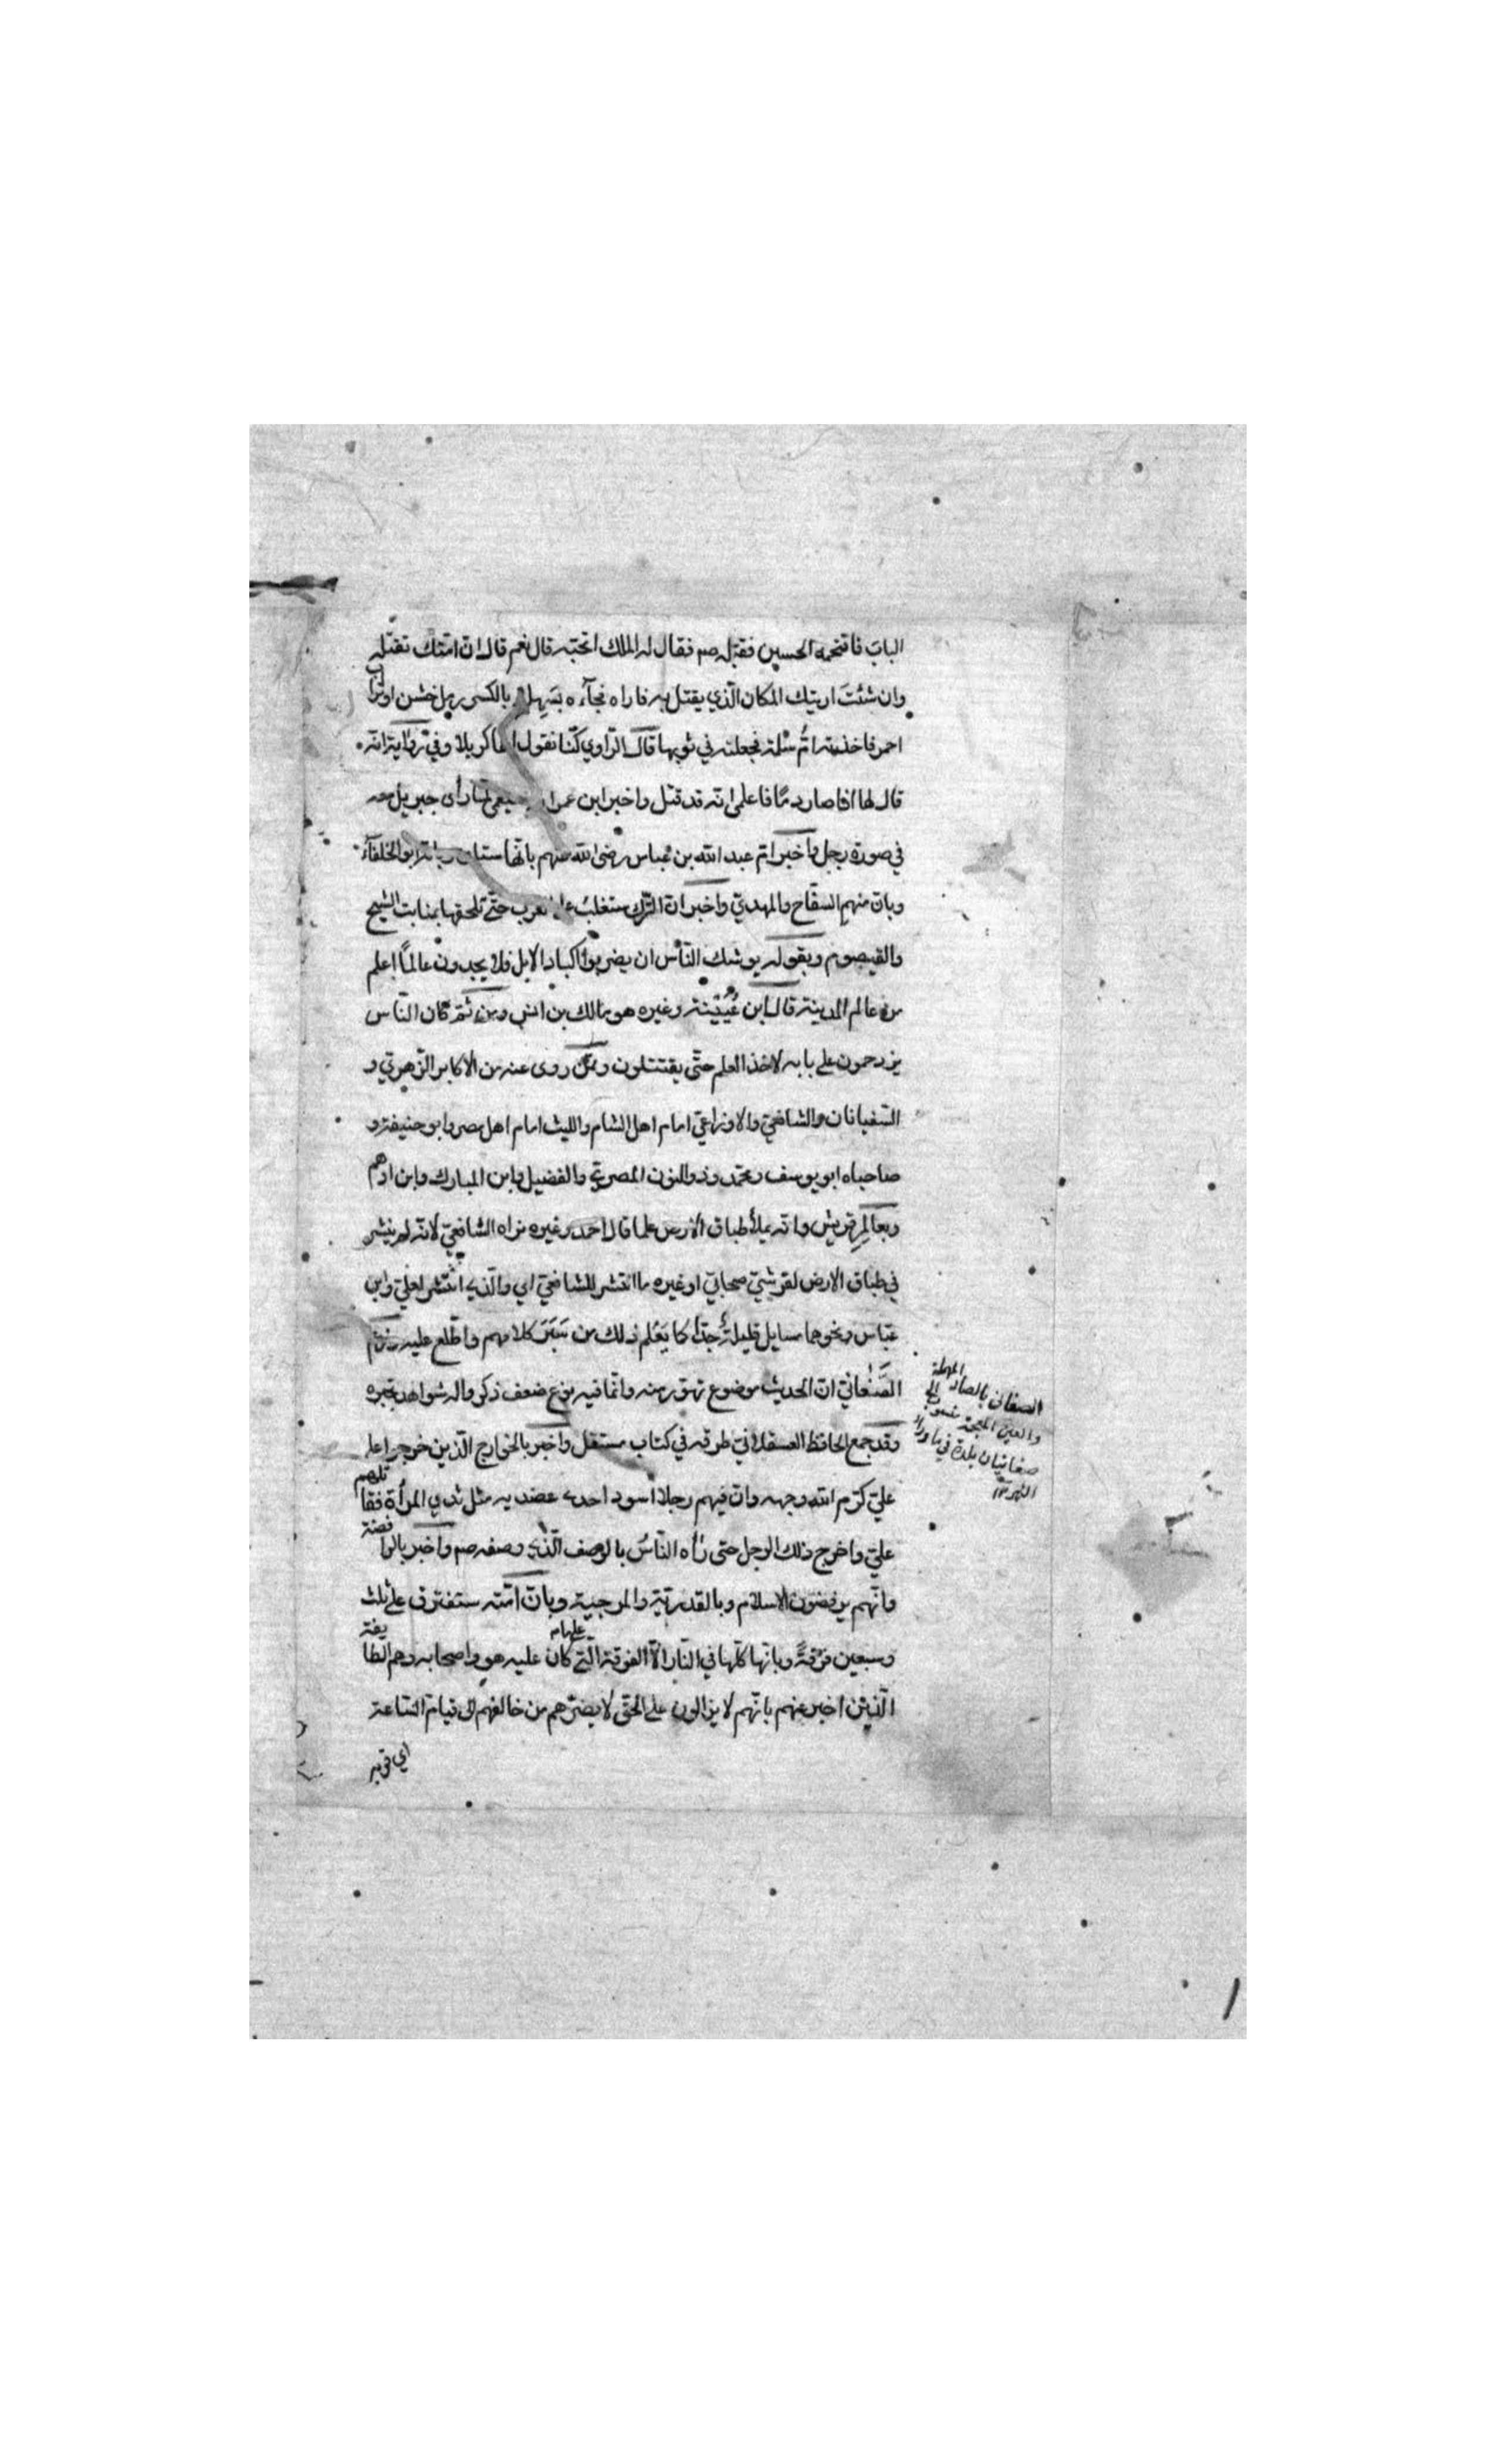 الباب فاقتحمه الحسين فقبّله صم فقال له الملك اتحبّه قال نعم قال انّ امّتك تقتله
وان شئتَ اريتك المكان الّذي يقتل به فاراه فجآءه بسَهلة بالكسر رمل خشن اوتراب
احمر فاخذته امُّ سلمة فجعلته في ثوبها قال الرّاوي كنّا نقول انها كربلا وفي رواية انّه
قال لها اذا صار دمًا فاعلمي انّه قد قتل واخبر ابن عمر لمّا رأى جبريل معه
في صورة رجل واخبر امّ عبد الله بن عباس رضى الله عنهم بانّها ابو الخلفآء
وبانّ منهم السفّاح والمهديّ واخبر انّ الترك ستغلب على العرب حتّى تلحقها بمنابت الشيح
والقيصوم وبقوله يوشك النّاس ان يضربوا اكباد الابل فلا يجدون عالمًا اعلم
من عالم المدينة قال ابن عُيَيْنة وغيره هو مالك بن انس ومن ثمّ كان النّاس
يزدحمون على بابه لاخذ العلم حتّى يقتتلون وممّن روى عنه من الاكابر الزّهريّ و
السّفيانان والشافعيّ والاوزاعيّ امام اهل الشام والليث امام اهل مصر وابو حنيفة و
صاحباه ابو يوسف ومحمّد وذو النون المصريّ والفضيل وابن المبارك وابن ادهم
وبعالِمِ قريش وانّه يملأ طباق الارض علما قال احمد وغيره نراه الشافعيّ لانّه لم ينتشر
في طباق الارض لقرشيّ صحابيّ اوغيره ما انتشر للشافعيّ اي والّذي انتشر لعليّ وابن
عبّاس ونحوهما مسايل قليلة جدّا كما يَعْلم ذلك من سَبَرَ كلامهم واطّلع عليه وزعْم
الصّغانيّ انّ الحديث موضوع تهوّر منه وانّما فيه نوع ضعف ذكر واله شواهد تجبره
وقد جمع الحافظ العسقلانيّ طرقه في كتاب مستقل واخبر بالخوارج الّذين خرجوا على
عليّ كرّم الله وجهه وانّ فيهم رجلا اسود احدى عضديه مثل ثدي المرأة فقاتلهم
عليّ واخرج ذلك الرجل حتى رأه النّاسُ بالوصف الّذي وصفه صم واخبر بالرافضة
وانّهم يرفضون الاسلام وبالقدريّة والمرجية وبانّ امّته ستفترق على ثلث
وسبعين فرقةً وبانّها كلّها في النّار الّا الفرقة الّتي كان عليه هو واصحابه وهم الطايفة
عليها م
الّذين اخبر عنهم بانّهم لا يزالون على الحقّ لا يضرّهم من خالفهم الى قيام السّاعة
اي قربه
الصغانى بالصاد المهملة
والغين المعجمة منسوب الى
صغانيان بلدة في ما وراء
النهر ١٢